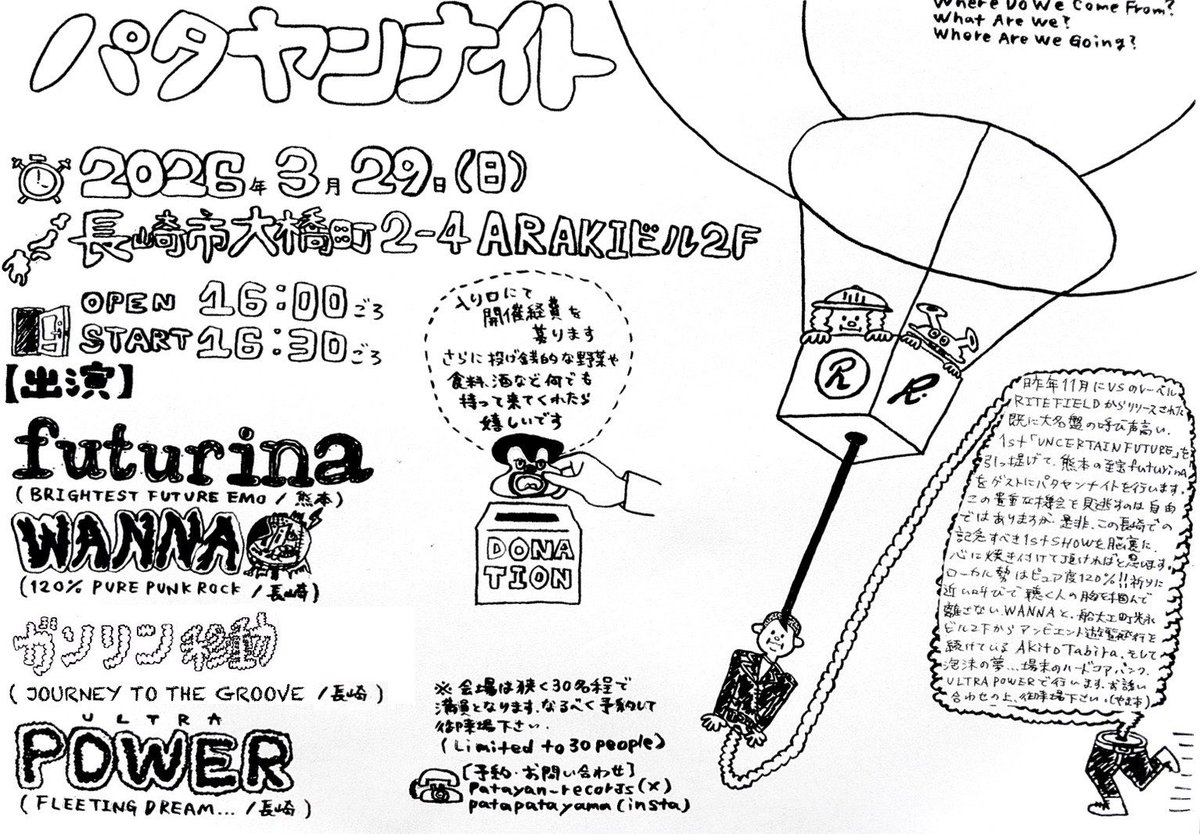 パタヤンナイト
Where Do We Come From?
What Are We?
Where Are We Going?
2026年3月29日(日)
長崎市大橋町2-4 ARAKIビル2F
OPEN 16:00ごろ
START 16:30ごろ
【出演】
futurina
(BRIGHTEST FUTURE EMO / 熊本)
WANNA
(120% PURE PUNK ROCK / 長崎)
ガソリン移動
(JOURNEY TO THE GROOVE / 長崎)
ULTRA
POWER
(FLEETING DREAM... / 長崎)
入り口にて
開催経費を
募ります
さらに投げ銭的な野菜や
食料、酒など何でも
持って来てくれたら
嬉しいです
DONA
TION
※会場は狭く30名程で
満員となります。なるべく予約して
御来場下さい.
(Limited to 30 people)
[予約・お問い合わせ]
patayan-records(X)
patapatayama(insta)
R
R.
昨年11月にUSのレーベル
RITEFIELDからリリースされた
既に大名盤の呼び声高い、
1st「UNCERTAIN FUTURE」を
引っ提げて、熊本の至宝futurina
をゲストにパタヤンナイトを行います。
この貴重な機会を見逃すのは自由
ではありますが、是非、この長崎での
記念すべき1st SHOWを脳裏に、
心に焼き付けて頂ければと思います。
ローカル勢はピュア度120%!!祈りに
近い叫びで聴く人の胸を掴んで
離さない、WANNAと、船大工町
ビル2Fからアンビエント遊覧飛行を
続けているAkito Tabira、そして
泡沫の夢...場末のハードコアパンク、
ULTRA POWERで行います。お誘い
合わせの上、御来場下さい。(やま本)